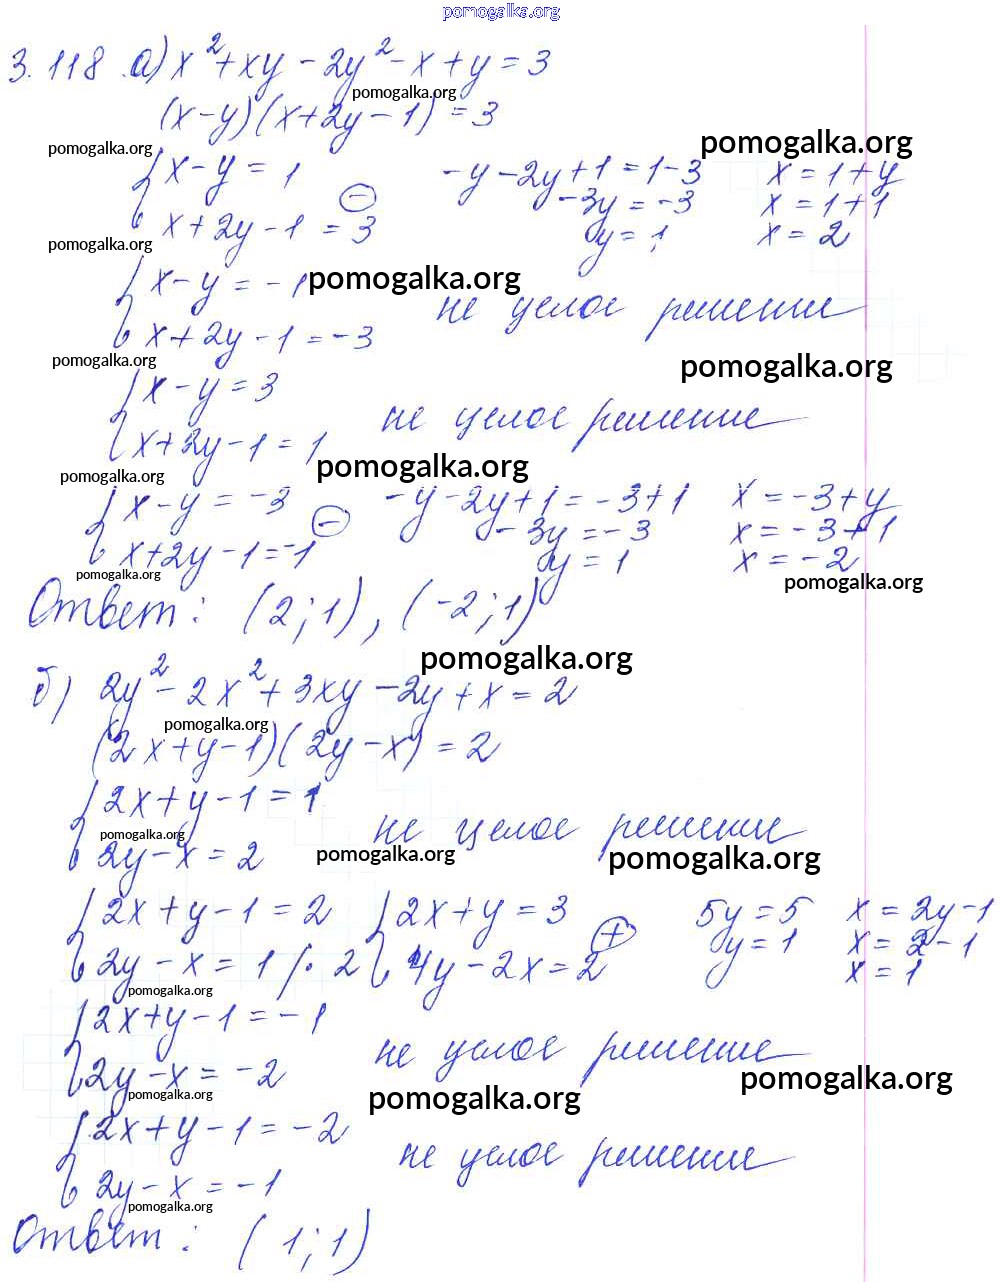 pomogalka.org
3.118 а) x² + xy - 2y² - x + y = 3
pomogalka.org
(x-y)(x+2y-1) = 3
pomogalka.org
pomogalka.org
{ x - y = 1
x + 2y - 1 = 3
⊖
-y - 2y + 1 = 1 - 3
-3y = -3
y = 1
x = 1 + y
x = 1 + 1
x = 2
pomogalka.org
{ x - y = -1
x + 2y - 1 = -3
pomogalka.org
не целое решение
pomogalka.org
pomogalka.org
{ x - y = 3
x + 2y - 1 = 1
не целое решение
pomogalka.org
pomogalka.org
{ x - y = -3
x + 2y - 1 = -1
⊖
-y - 2y + 1 = -3 + 1
-3y = -3
y = 1
x = -3 + y
x = -3 + 1
x = -2
pomogalka.org
pomogalka.org
Ответ: (2; 1), (-2; 1)
pomogalka.org
б) 2y² - 2x² + 3xy - 2y + x = 2
pomogalka.org
(2x + y - 1)(2y - x) = 2
{ 2x + y - 1 = 1
2y - x = 2
pomogalka.org
не целое решение
pomogalka.org
pomogalka.org
{ 2x + y - 1 = 2
2y - x = 1 /· 2
{ 2x + y = 3
4y - 2x = 2
⊕
5y = 5
y = 1
x = 2y - 1
x = 2 - 1
x = 1
pomogalka.org
{ 2x + y - 1 = -1
2y - x = -2
не целое решение
pomogalka.org
pomogalka.org
pomogalka.org
{ 2x + y - 1 = -2
2y - x = -1
не целое решение
pomogalka.org
Ответ: (1; 1)